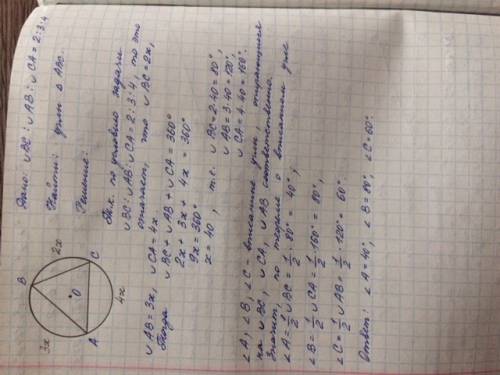 Дано: ∪BC:∪AB:∪CA = 2:3:4
Найти: углы △ABC.
Решение:
Т.к. по условию задачи
∪BC:∪AB:∪CA = 2:3:4, то это
означает, что ∪BC = 2x,
∪AB = 3x, ∪CA = 4x
Тогда ∪BC + ∪AB + ∪CA = 360°
2x + 3x + 4x = 360°
9x = 360°
x = 40, т.е. ∪BC = 2·40 = 80°,
∪AB = 3·40 = 120°,
∪CA = 4·40 = 160°.
∠A, ∠B, ∠C - вписанные углы, опирающиеся
на ∪BC, ∪CA, ∪AB соответственно.
Значит, по теореме о вписанном угле
∠A = 1/2 ∪BC = 1/2 · 80° = 40°,
∠B = 1/2 ∪CA = 1/2 · 160° = 80°,
∠C = 1/2 ∪AB = 1/2 · 120° = 60°.
Ответ: ∠A = 40°, ∠B = 80°, ∠C = 60°
B
2x
3x
O
A
C
4x